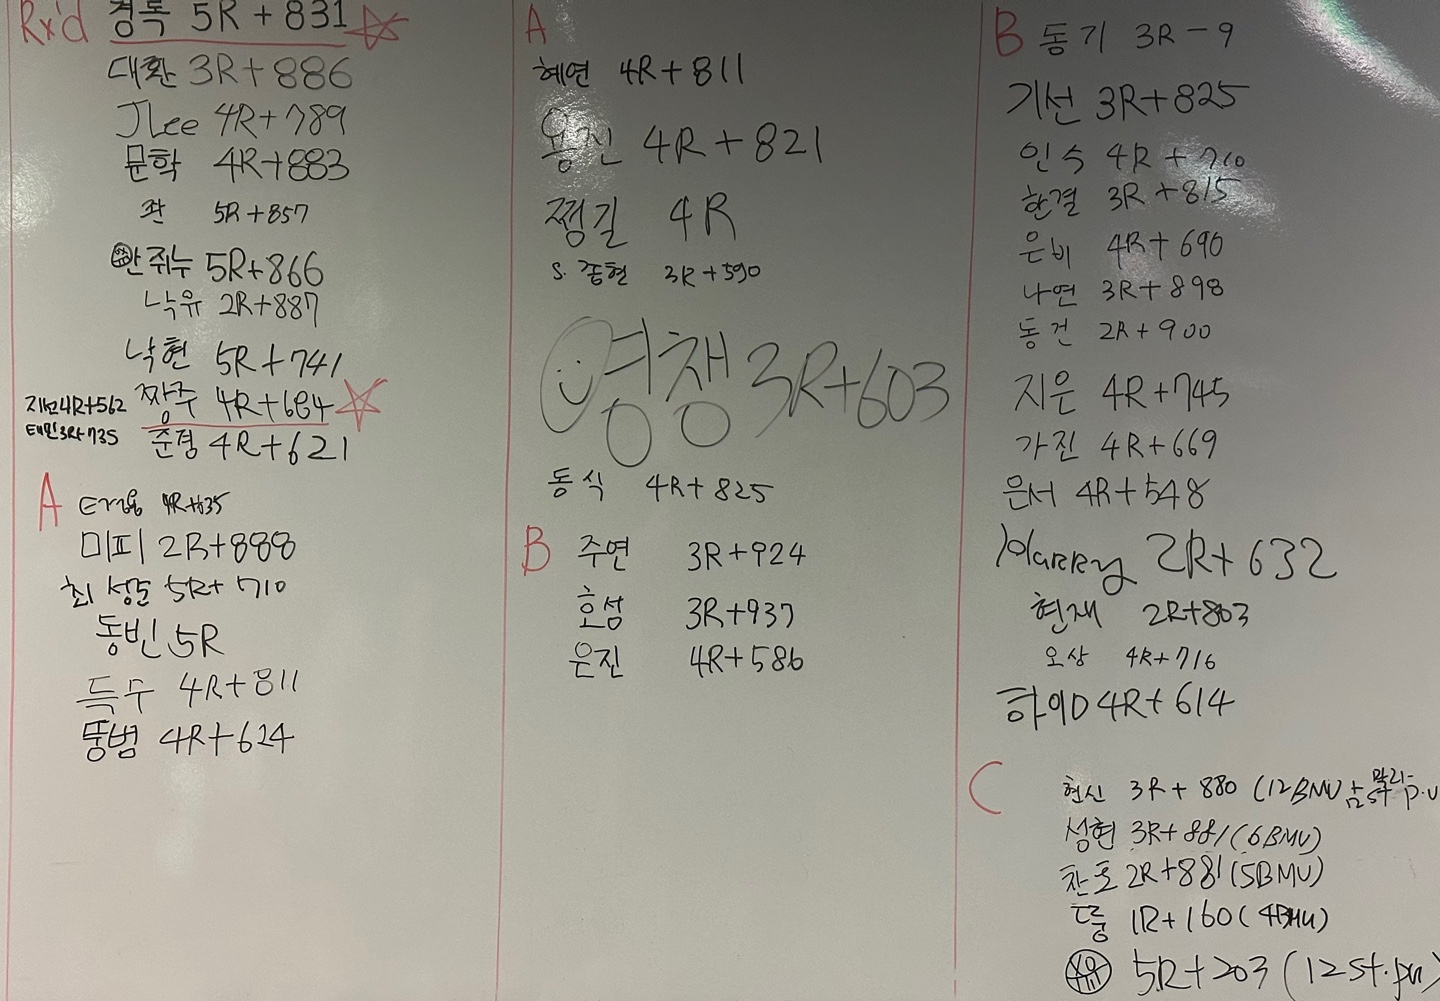 Rx'd 경록 5R + 831
대환 3R+886
JLee 4R+789
문학 4R+883
콴 5R+857
안쥐누 5R+866
낙유 2R+887
낙현 5R+741
짱주 4R+684
지선 4R+562
태민 3R+735
준경 4R+621
A
4R+635
미피 2R+888
최성문 5R+710
동빈 5R
득수 4R+811
뚱범 4R+624
A
혜연 4R+811
용진 4R+821
찡길 4R
S. 종현 3R+590
영챙 3R+603
동식 4R+825
B 주연 3R+924
호섬 3R+937
은진 4R+586
B 동기 3R-9
기선 3R+825
인수 4R+710
한결 3R+815
은비 4R+690
나연 3R+898
동건 2R+900
지은 4R+745
가진 4R+669
은서 4R+548
Harry 2R+632
현재 2R+803
오상 4R+716
하이D 4R+614
C
현신 3R+880 (12BMU + 12 st P.U
성현 3R+881 (6BMU)
찬호 2R+881 (5BMU)
1R+160 (4BMU)
5R+203 (12 st. pu)